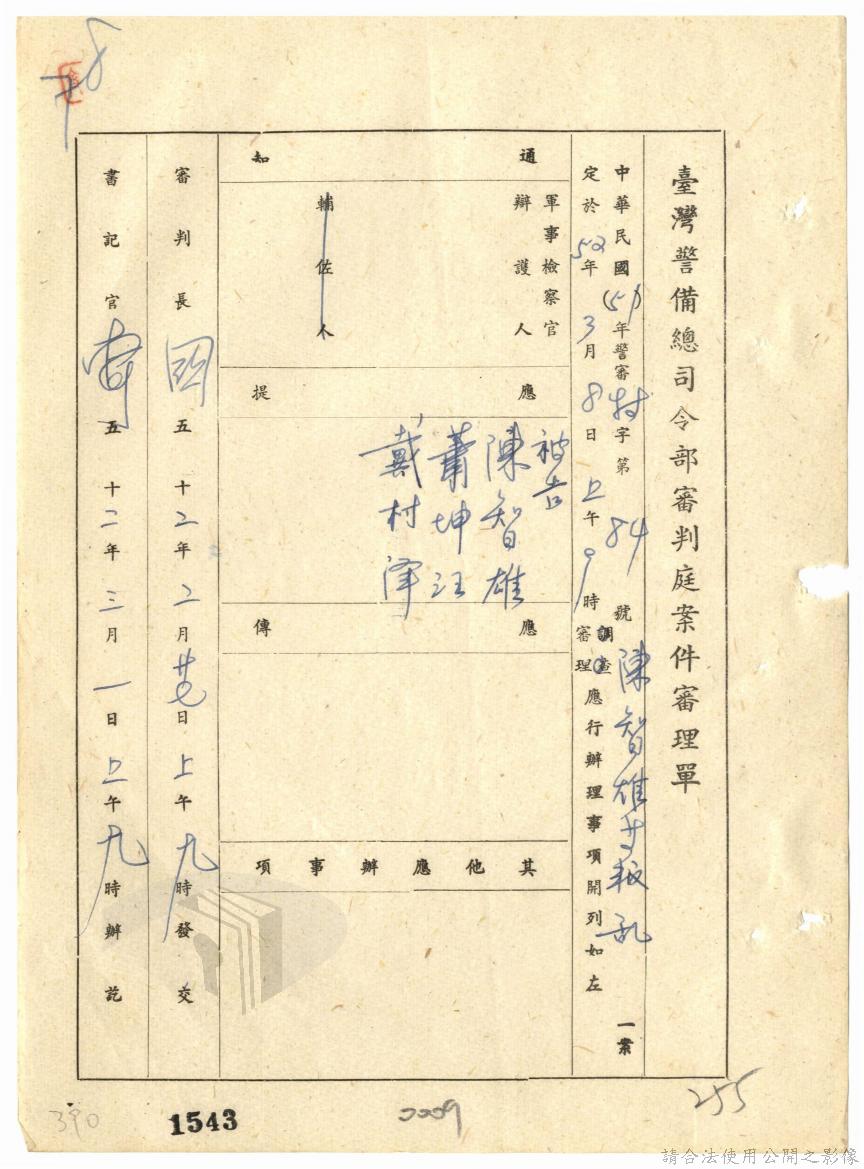 臺灣警備總司令部審判庭案件審理單
中華民國(51)年警審特字第84號陳智雄等叛乱一案
定於52年3月8日上午9時調查審理應行辦理事項開列如左
通知
軍事檢察官
辯護人
輔佐人
應提
被告
陳智雄
蕭坤旺
戴村澤
應傳
其他應辦事項
審判長
五十二年2月廿七日上午九時發交
書記官
五十二年三月一日上午九時辦訖
255
390
1543
請合法使用公開之影像